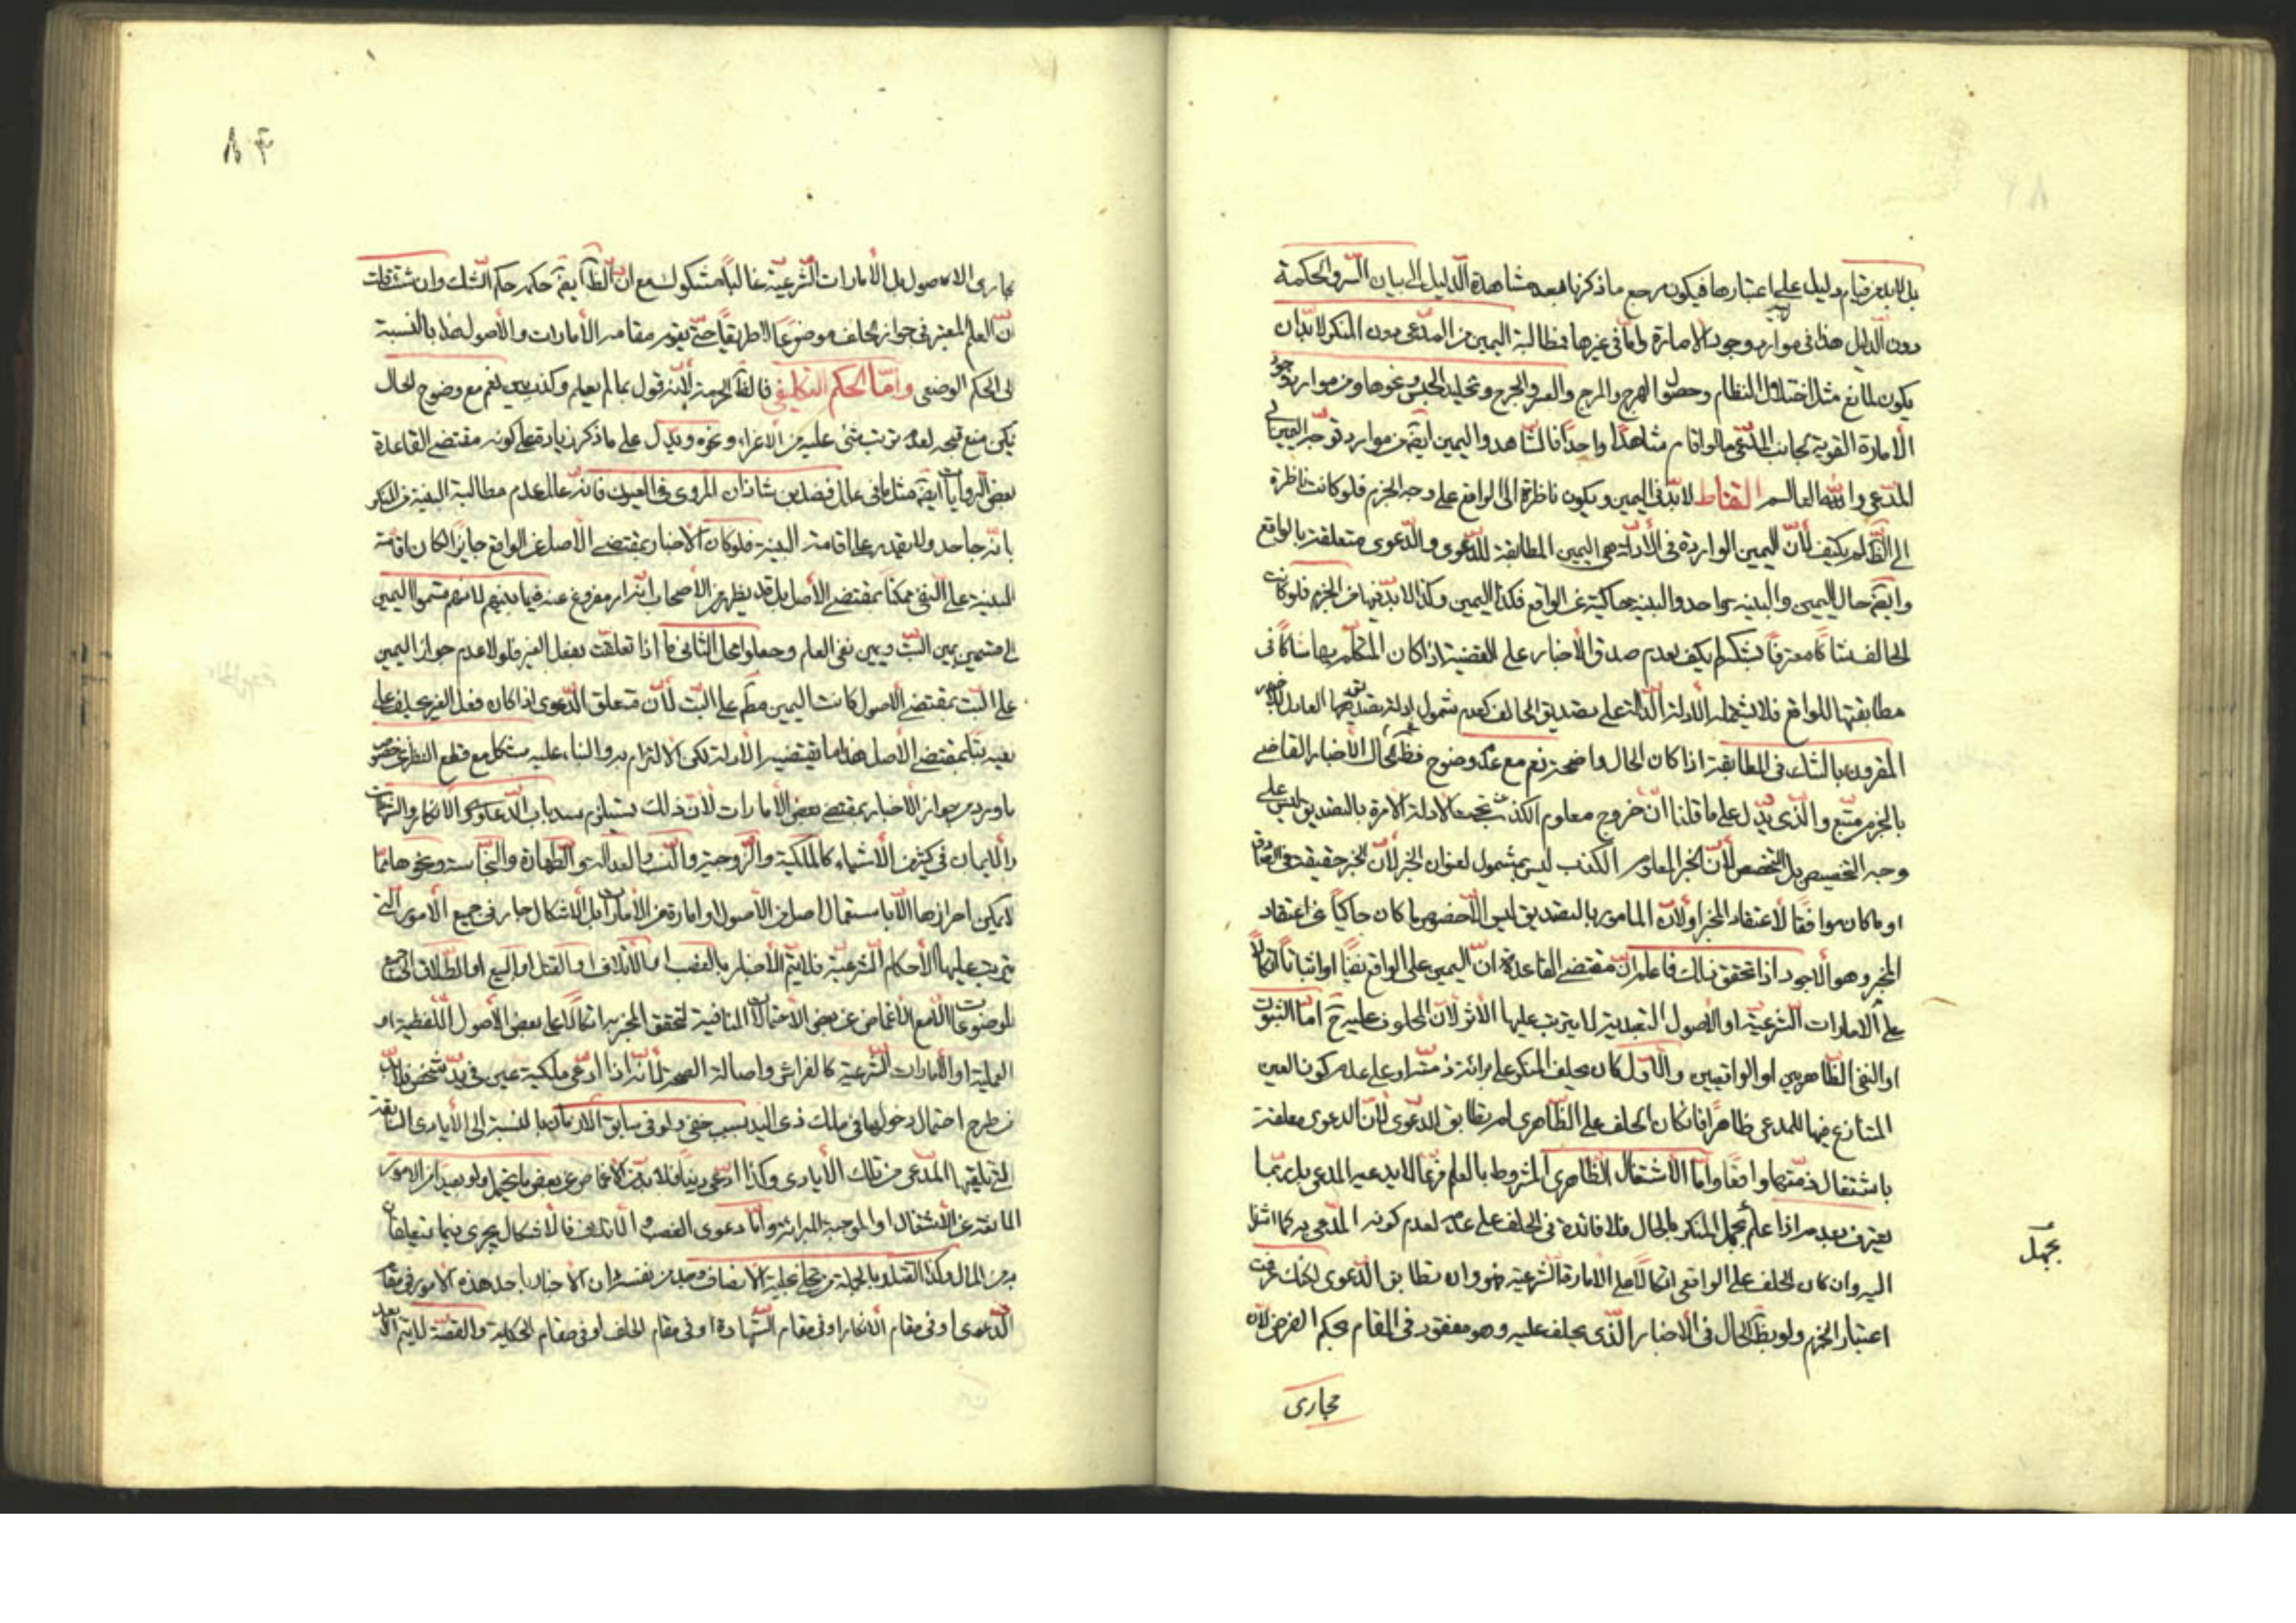 بل لابد من قيام دليل على اعتبارها فيكون مرجع ما ذكرنا بعد مشاهدة الدليل الى بيان السر والحكمة
دون الدليل هذا في موارد وجود الامارة واما في غيرها فمطالبة اليمين من المدعى دون المنكر لابد ان
يكون لمانع مثل اختلال النظام وحصول الهرج والمرج والعسر والحرج وتخليد الحبس ونحوها ومن موارد وجود
الأمارة القوية بجانب المدعى ما لو اقام شاهدًا واحدًا فالشاهد واليمين ايضا من موارد توجه اليمين الى
المدعى والله العالم التقاط لابد في اليمين ويكون ناظرة الى الواقع على وجه الجزم فلو كانت ناظرة
الى الظاهر لم يكتف لأن اليمين الواردة في الأدلة هي اليمين المطابقة للدعوى والدعوى متعلقة بالواقع
وايضا حال اليمين والبينة واحد والبينة حاكية عن الواقع فكذا اليمين وكذا لابد فيها من الجزم فلو كانت
الحالف شاكا معترفًا بشكه لم يكتف لعدم صدق الأخبار على القضية اذا كان المتكلم بها شاكا في
مطابقتها للواقع فلا يشمله الأدلة الدالة على تصديق الحالف كعدم شمول ادلة تصديق العادل
المقرون بالشك في المطابقة اذا كان الحال واضحة نعم مع عدم وضوح فظاهر حال الأخبار القاضى
بالجزم متبع والذي يدل على ما قلنا ان خروج معلوم الكذب عن تحت الادلة الآمرة بالتصديق ليس على
وجه التخصيص بل التخصص لأن الخبر المعلوم الكذب ليس بمشمول لعنوان الخبر لأن الخبر حقيقة في الصادق
او ما كان موافقًا لأعتقاد المخبر او لأن المامور بالتصديق ليس الا خصوص ما كان حاكيًا عن اعتقاد
المخبر وهو الأجود اذا تحقق ذلك فاعلم ان مقتضى القاعدة ان اليمين على الواقع نفيًا او اثباتًا اتكالًا
على الأمارات الشرعية او الأصول التعبدية لا يترتب عليها الأثر لأن المحلوف عليه ح اما الثبوت
او النفى الظاهريين او الواقعيين والأول كان يحلف المنكر على برائة ذمته او على عدم كون العين
المتنازع فيها للمدعى ظاهرًا فان كان الحلف على الظاهرى لم يطابق الدعوى لأن الدعوى معلقة
باشتغال ذمته واقعًا واما الأشتغال الظاهرى المشروط بالعلم فربما لا يدعيه المدعى بل ربما
يعترف بعدمه اذا علم بجهل المنكر بالحال فلا فائدة في الحلف على عدمه لعدم كونه المدعى به كما اشرنا
اليه وان كان الحلف على الواقعى اتكالًا على الأمارة الشرعية فهو وان تطابق الدعوى لكنك عرفت
اعتبار الجزم ولو بظاهر الحال في الأخبار الذي يحلف عليه وهو مفقود في المقام بحكم الفرض لأن
مجارى
بجهل
٨٣
مجارى الأصول بل الأمارات الشرعية غالبًا مشكوك مع ان الظان ايضا حكمه حكم الشك وان شئت قلت
ان العلم المعتبر في جواز الحلف موضوعًا لا طريقيًا حتى يقوم مقامه الأمارات والأصول هذا بالنسبة
الى الحكم الوضعى واما الحكم التكليفى فالظاهر الحرمة لأنه قول بما لم يعلم وكذب نعم مع وضوح الحال
يمكن منع قبحه لعدم ترتب شئ عليه من الأغراء ونحوه ويدل على ما ذكر زيادة على كونه مقتضى القاعدة
بعض الروايات ايضا مثل ما في علل فضل بن شاذان المروى في العيون فانه علل عدم مطالبة البينة من المنكر
بانه جاحد ولا يقدر على اقامة البينة فلو كان الأخبار بمقتضى الأصل عن الواقع جايزًا لكان اقامة
البينة على النفى ممكنًا بمقتضى الأصل بل قد يظهر من الأصحاب انه امر مفروغ عنه فيما بينهم لأنهم قسموا اليمين
الى قسمين يمين البت ويمين نفى العلم وجعلوا محل الثانى ما اذا تعلقت بفعل الغير فلولا عدم جواز اليمين
على البت بمقتضى الأصول كانت اليمين مطلقا على البت لأن متعلق الدعوى اذا كان فعل الغير يحلف على
نفيه بتًا بمقتضى الأصل هذا ما يقتضيه الأدلة لكن الالتزام به والبناء عليه مشكل مع قطع النظر عن خصوص
ما ورد من جواز الأخبار بمقتضى بعض الأمارات لأن ذلك يستلزم سد باب الدعاوى والأنكار والشهادات
والأيمان في كثير من الأشياء كالملكية والزوجية والنسب والعدالة والطهارة والنجاسة ونحوها مما
لا يمكن احرازها الا باستعمال اصل من الأصول او امارة من الأمارات بل الأشكال جار في جميع الأمور التى
يترتب عليها الأحكام الشرعية فلا يتم الأخبار بالغصب او الأتلاف او القتل او البيع او الطلاق الى جميع
الموضوعات الا مع الأغماض عن بعض الأحتمالات المنافية لتحقق المخبر به اتكالًا على بعض الأصول اللفظية او
العملية او الأمارات الشرعية كالفراش واصالة الصحة لأنه اذا ادعى ملكية عين في يد شخص فلابد
من طرح احتمال دخولها في ملك ذى اليد بسبب خفى ولو في سابق الأزمان بالنسبة الى الأيادى السابقة
التى تلقيها المدعى من تلك الأيادى وكذا اذا ادعى دينًا فلابد من الأغماض عن بعض ما يحتمل ولو بعيدًا من الأمور
المانعة عن الأشتغال او الموجبة للبرائة واما دعوى الغصب والأتلاف فالأشكال يجرى فيما يتعلقان
به من المال وكذا القتل وبالجملة من تحلى بحلية الأنصاف وجد من نفسه ان الأخبار باحد هذه الأمور في مقام
الدعوى او في مقام الأنكار او في مقام الشهادة او في مقام الحلف او في مقام الحكاية والقصة لا يتم الا بعد